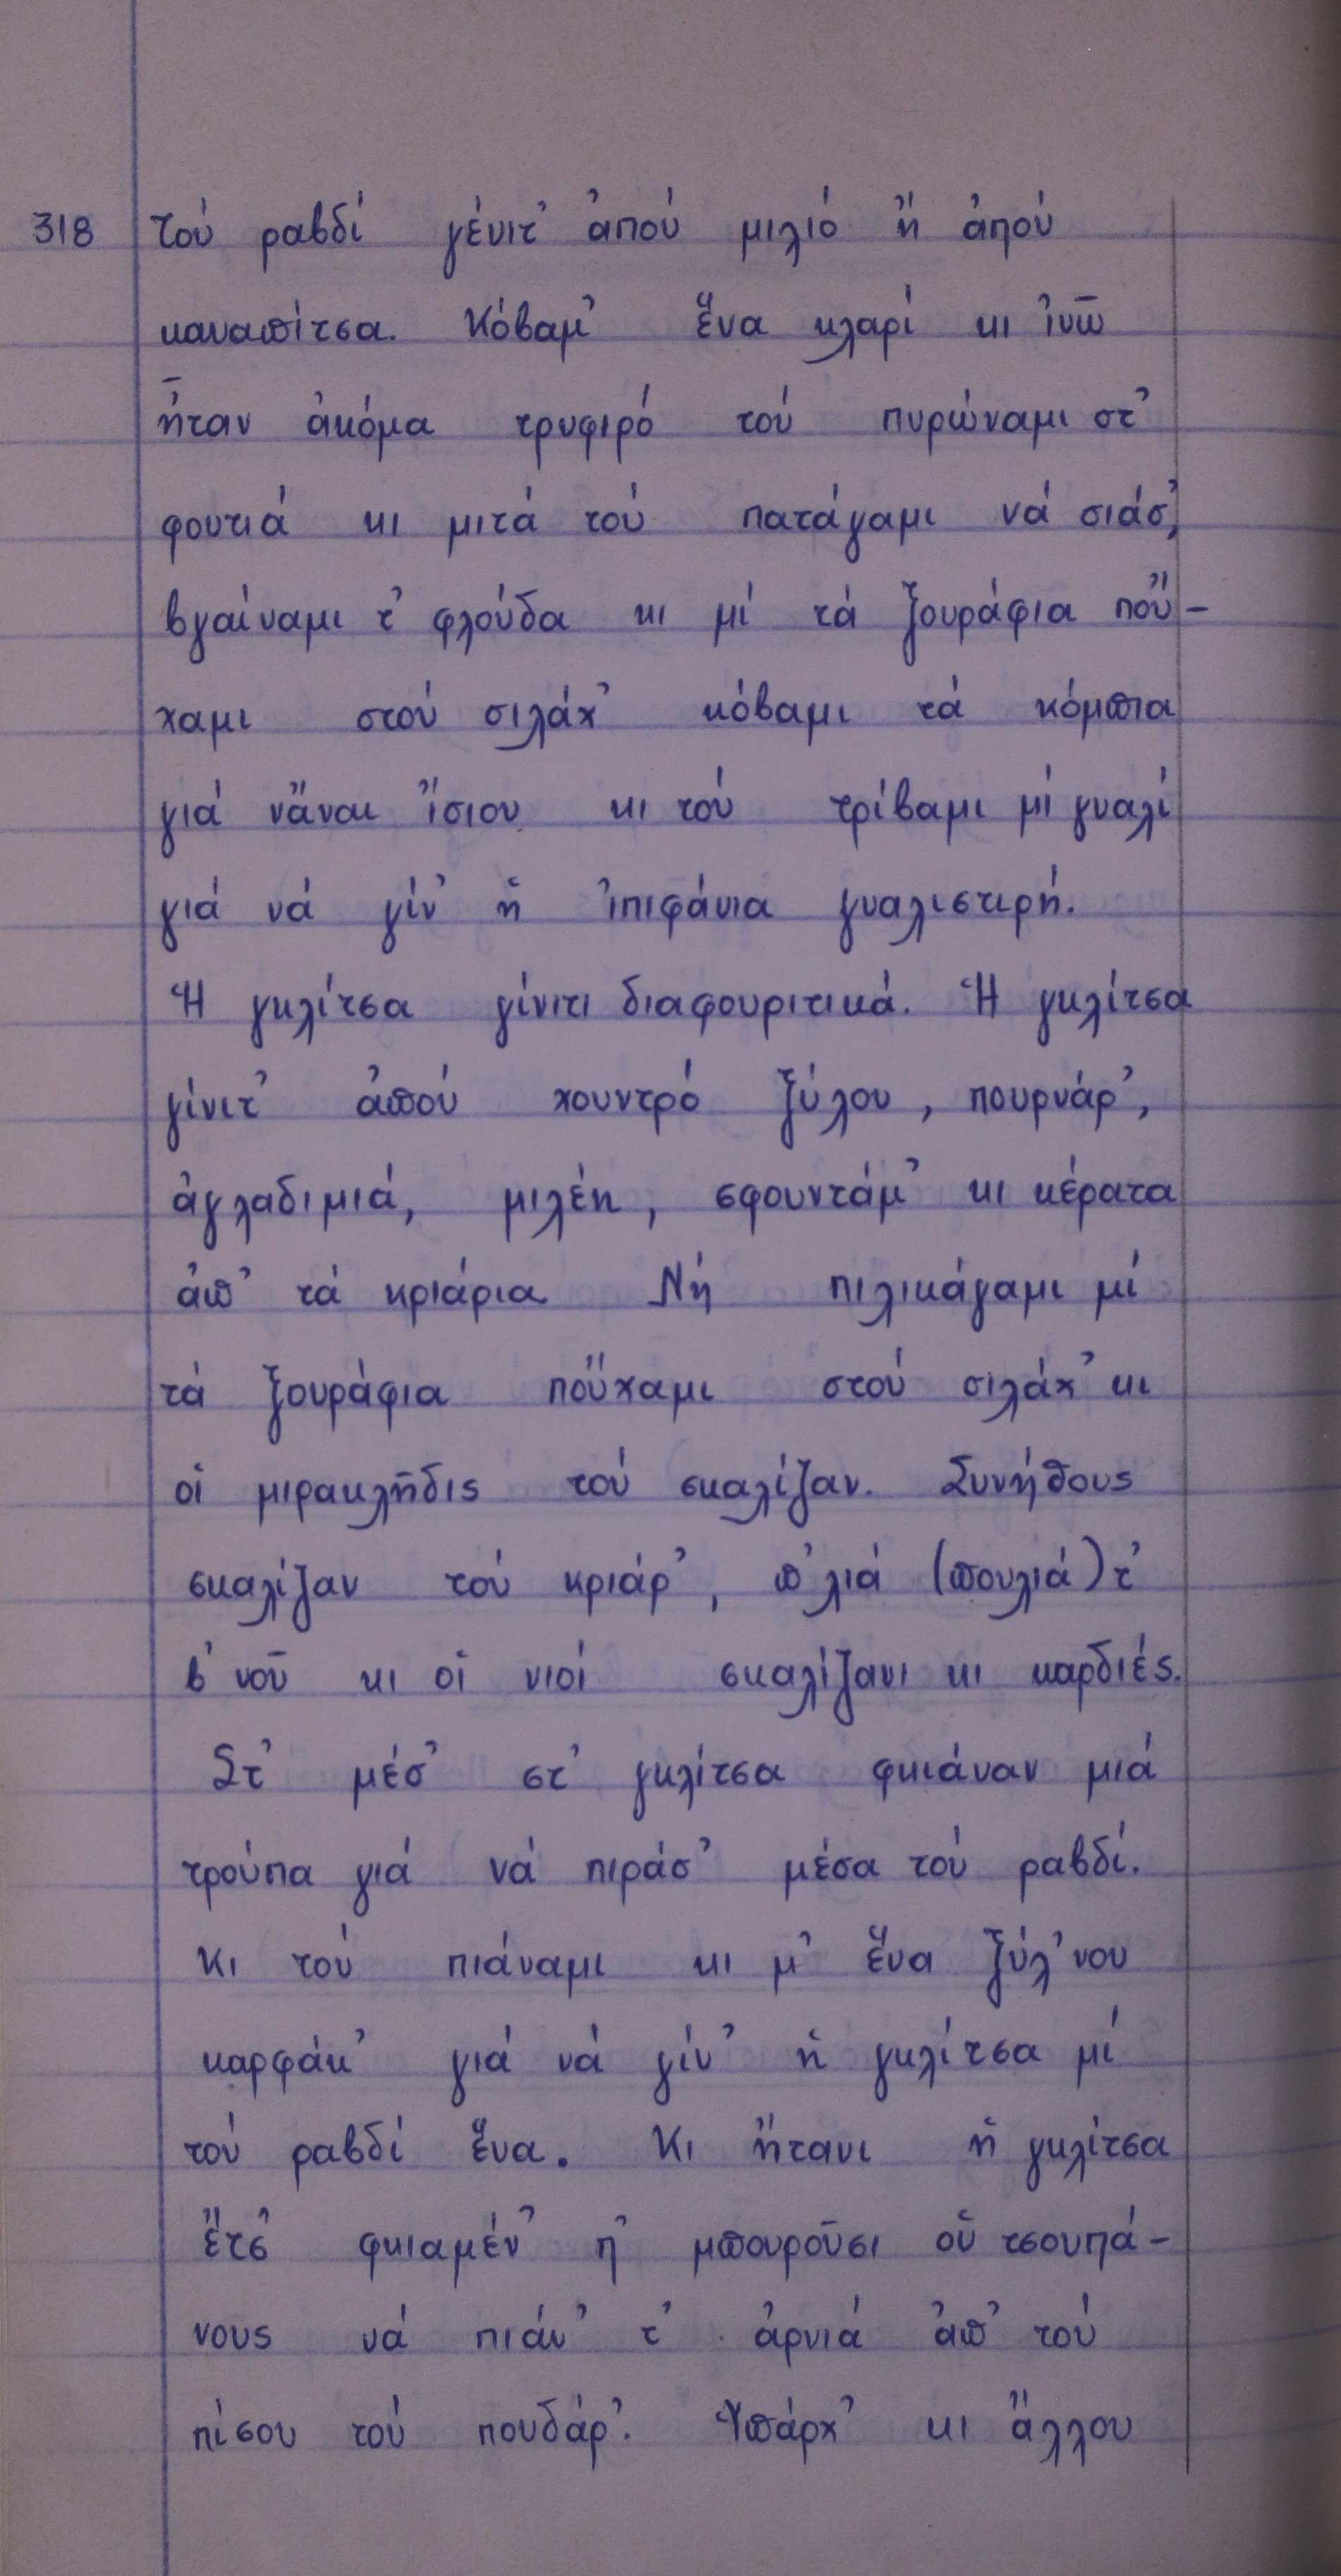 318 τού ραβδί γένιτ' ἀπού μιλιό ἤ ἀπού
καναπίτσα. Κόβαμ' ἕνα κλαρί κι ἰνῶ
ἦταν ἀκόμα τρυφιρό τού πυρώναμι στ'
φουτιά κι μιτά τού πατάγαμι νά σιάσ',
βγαίναμι τ' φλούδα κι μί τά ξουράφια πού̓-
χαμι στού σιλάχ' κόβαμι τά κόμπια
γιά νἄναι ἴσιου κι τού τρίβαμι μί γυαλί
γιά νά γίν' ἡ ἰπιφάνια γυαλιστιρή.
Ἡ γκλίτσα γίνιτι διαφουριτικά. Ἡ γκλίτσα
γίνιτ' ἀπού χουντρό ξύλου, πουρνάρ',
ἀγλαδιμιά, μιλέκ, σφουντάμ' κι κέρατα
ἀπ' τά κριάρια Νή πιλικάγαμι μί
τά ξουράφια πού̓χαμι στού σιλάχ' κι
οἱ μιρακλῆδις τού σκαλίζαν. Συνήθους
σκαλίζαν τού κριάρ', π'λιά (πουλιά) τ'
β'νοῦ κι οἱ νιοί σκαλίζανι κι καρδιές.
Στ' μέσ' στ' γκλίτσα φκιάναν μιά
τρούπα γιά νά πιράσ' μέσα τού ραβδί.
Κι τού πιάναμι κι μ' ἕνα ξύλ'νου
καρφάκ' γιά νά γίν' ἡ γκλίτσα μί
τού ραβδί ἕνα. Κι ἤτανι ἡ γκλίτσα
ἔτσ' φκιαμέν' π' μπουροῦσι οὑ τσουπά-
νους νά πιάν' τ' ἀρνιά ἀπ' τού
πίσου τού πουδάρ'. Ὑπάρχ' κι ἄλλου